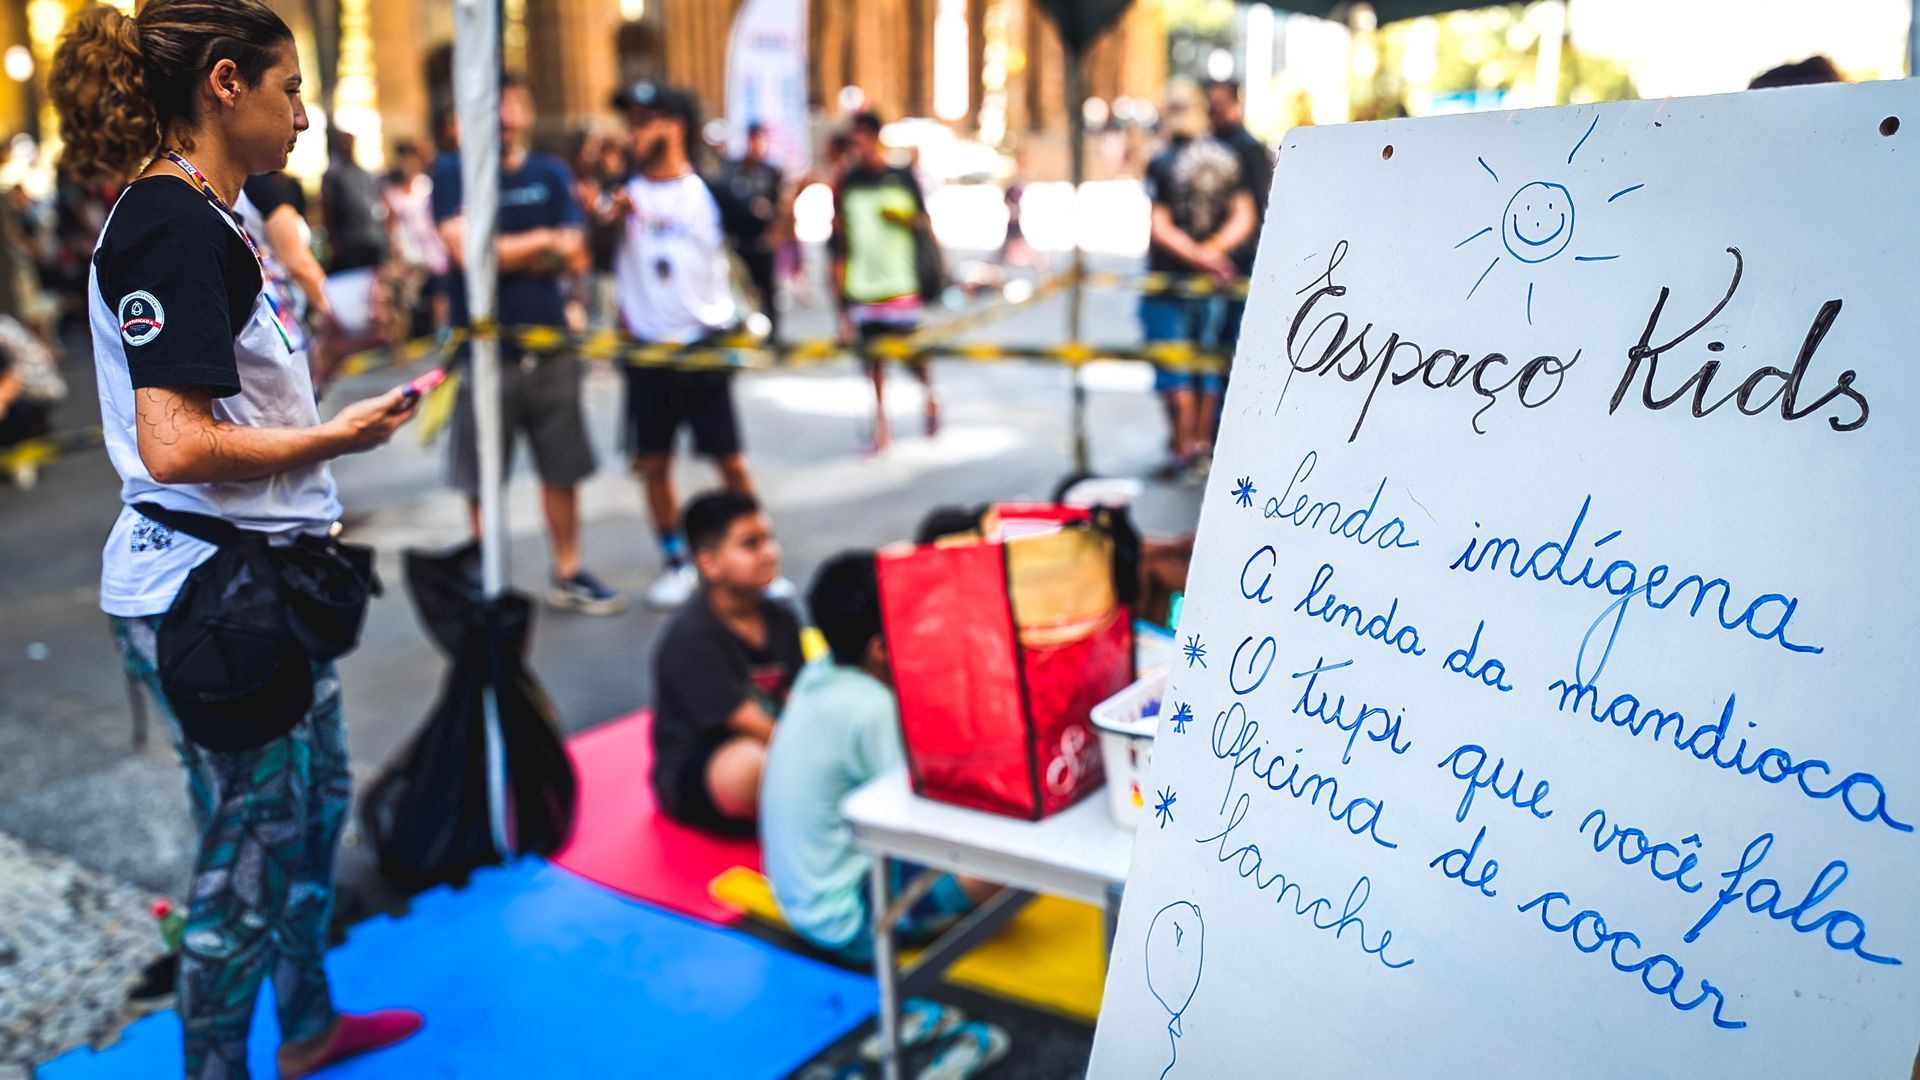 Espaço Kids
* Lenda indígena
A lenda da mandioca
* O tupi que você fala
* Oficina de cocar
* lanche